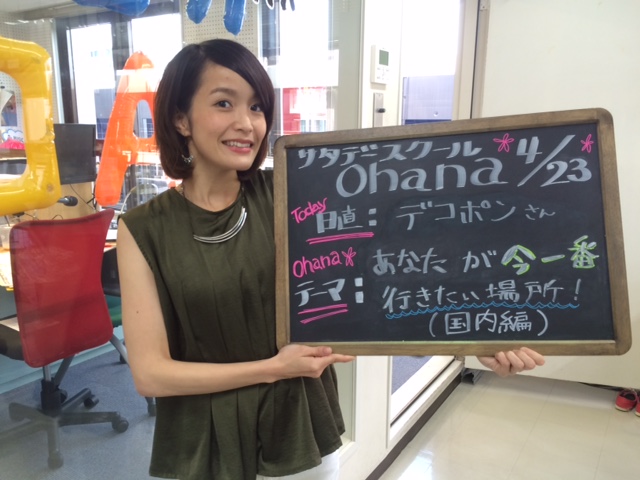 サタデースクール
Ohana 4/23
Today
日直：デコポンさん
Ohana あなたが今一番
テーマ：行きたい場所！
(国内編)